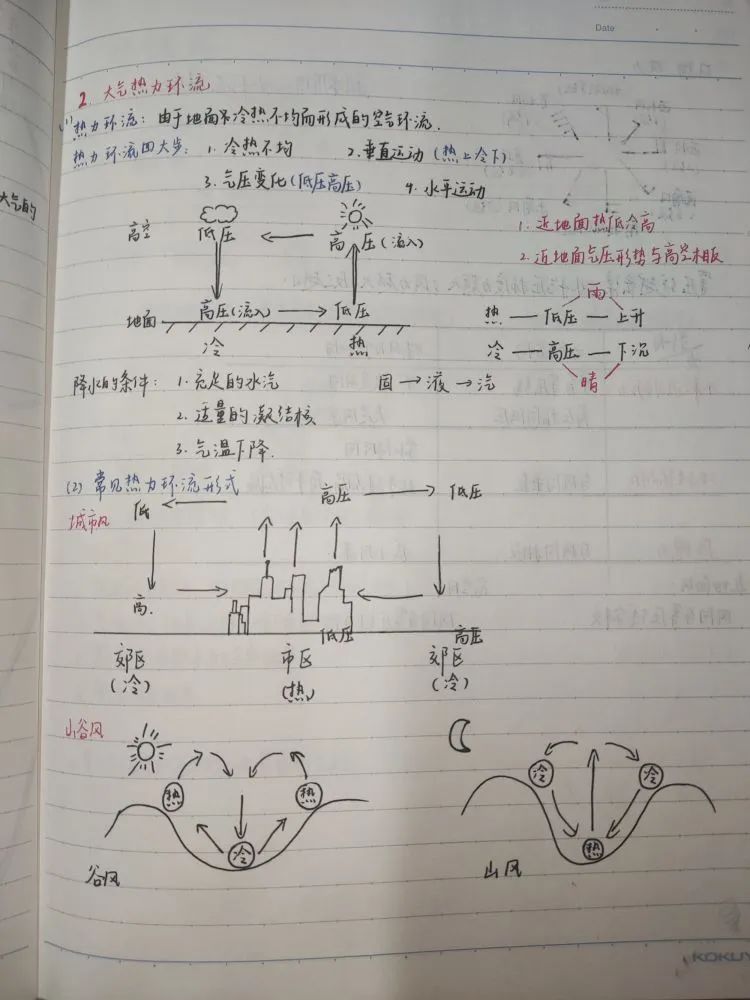 Date
2. 大气热力环流
(1) 热力环流：由于地面冷热不均而形成的空气环流.
热力环流四大步：1. 冷热不均 2. 垂直运动 (热上冷下)
3. 气压变化(低压高压) 4. 水平运动
大气的
高空 低压 高压(流入)
1. 近地面热低冷高
2. 近地面气压形势与高空相反
地面 高压(流入) 低压
冷 热
雨
热 — 低压 — 上升
冷 — 高压 — 下沉
晴
降水的条件：1. 充足的水汽 固→液→汽
2. 适量的凝结核
3. 气温下降.
(2) 常见热力环流形式
城市风 低 高压 低压
高. 低压 高压
郊区 市区 郊区
(冷) (热) (冷)
山谷风
热 热 冷 冷
冷 热
谷风 山风
KOKUY